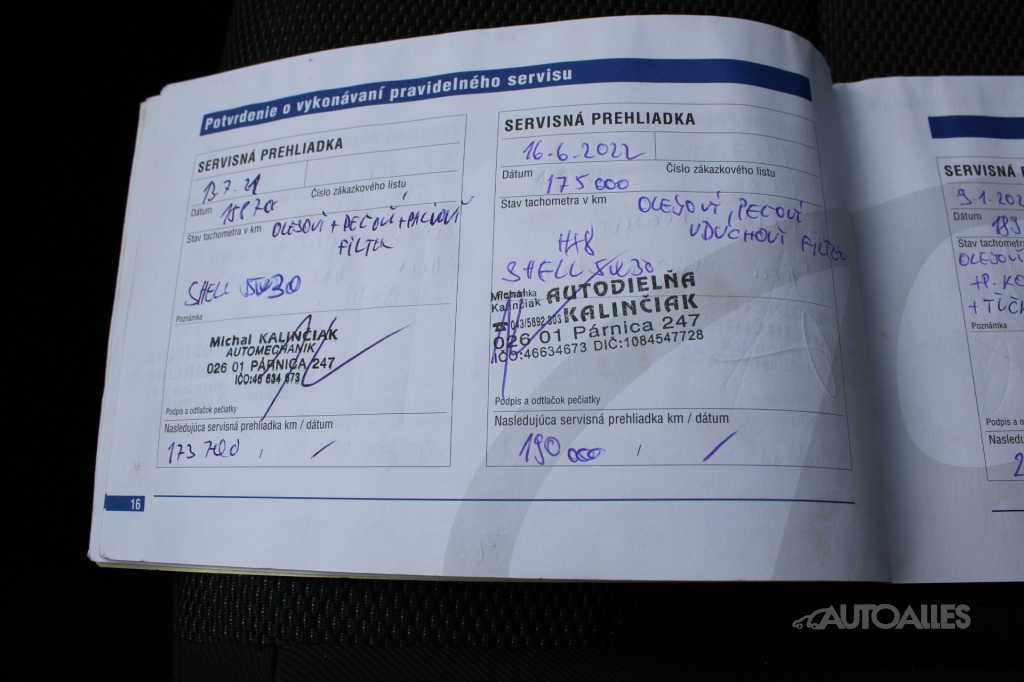 Potvrdenie o vykonávaní pravidelného servisu
SERVISNÁ PREHLIADKA
13.7.21
Dátum
Číslo zákazkového listu
Stav tachometra v km
OLEJOVÍ + PEĽOVÍ + PALIVOVÍ
FILTER
SHELL 5W30
Poznámka
Michal KALINČIAK
AUTOMECHANIK
026 01 PÁRNICA 247
IČO:46 634 673
Podpis a odtlačok pečiatky
Nasledujúca servisná prehliadka km / dátum
173 700 / /
16
SERVISNÁ PREHLIADKA
16.6.2022
Dátum
Číslo zákazkového listu
175 000
Stav tachometra v km
OLEJOVÍ, PEĽOVÍ
VDUCHOVÍ FILTER
SHELL 5W30
Michal
Kalinčiak
AUTODIELŇA
KALINČIAK
☎ 043/5892 303
026 01 Párnica 247
IČO:46634673 DIČ:1084547728
Podpis a odtlačok pečiatky
Nasledujúca servisná prehliadka km / dátum
190 000 / /
SERVISNÁ
Dátum
Stav tachometra
OLEJOVÍ
Poznámka
Podpis a
AUTOALLES